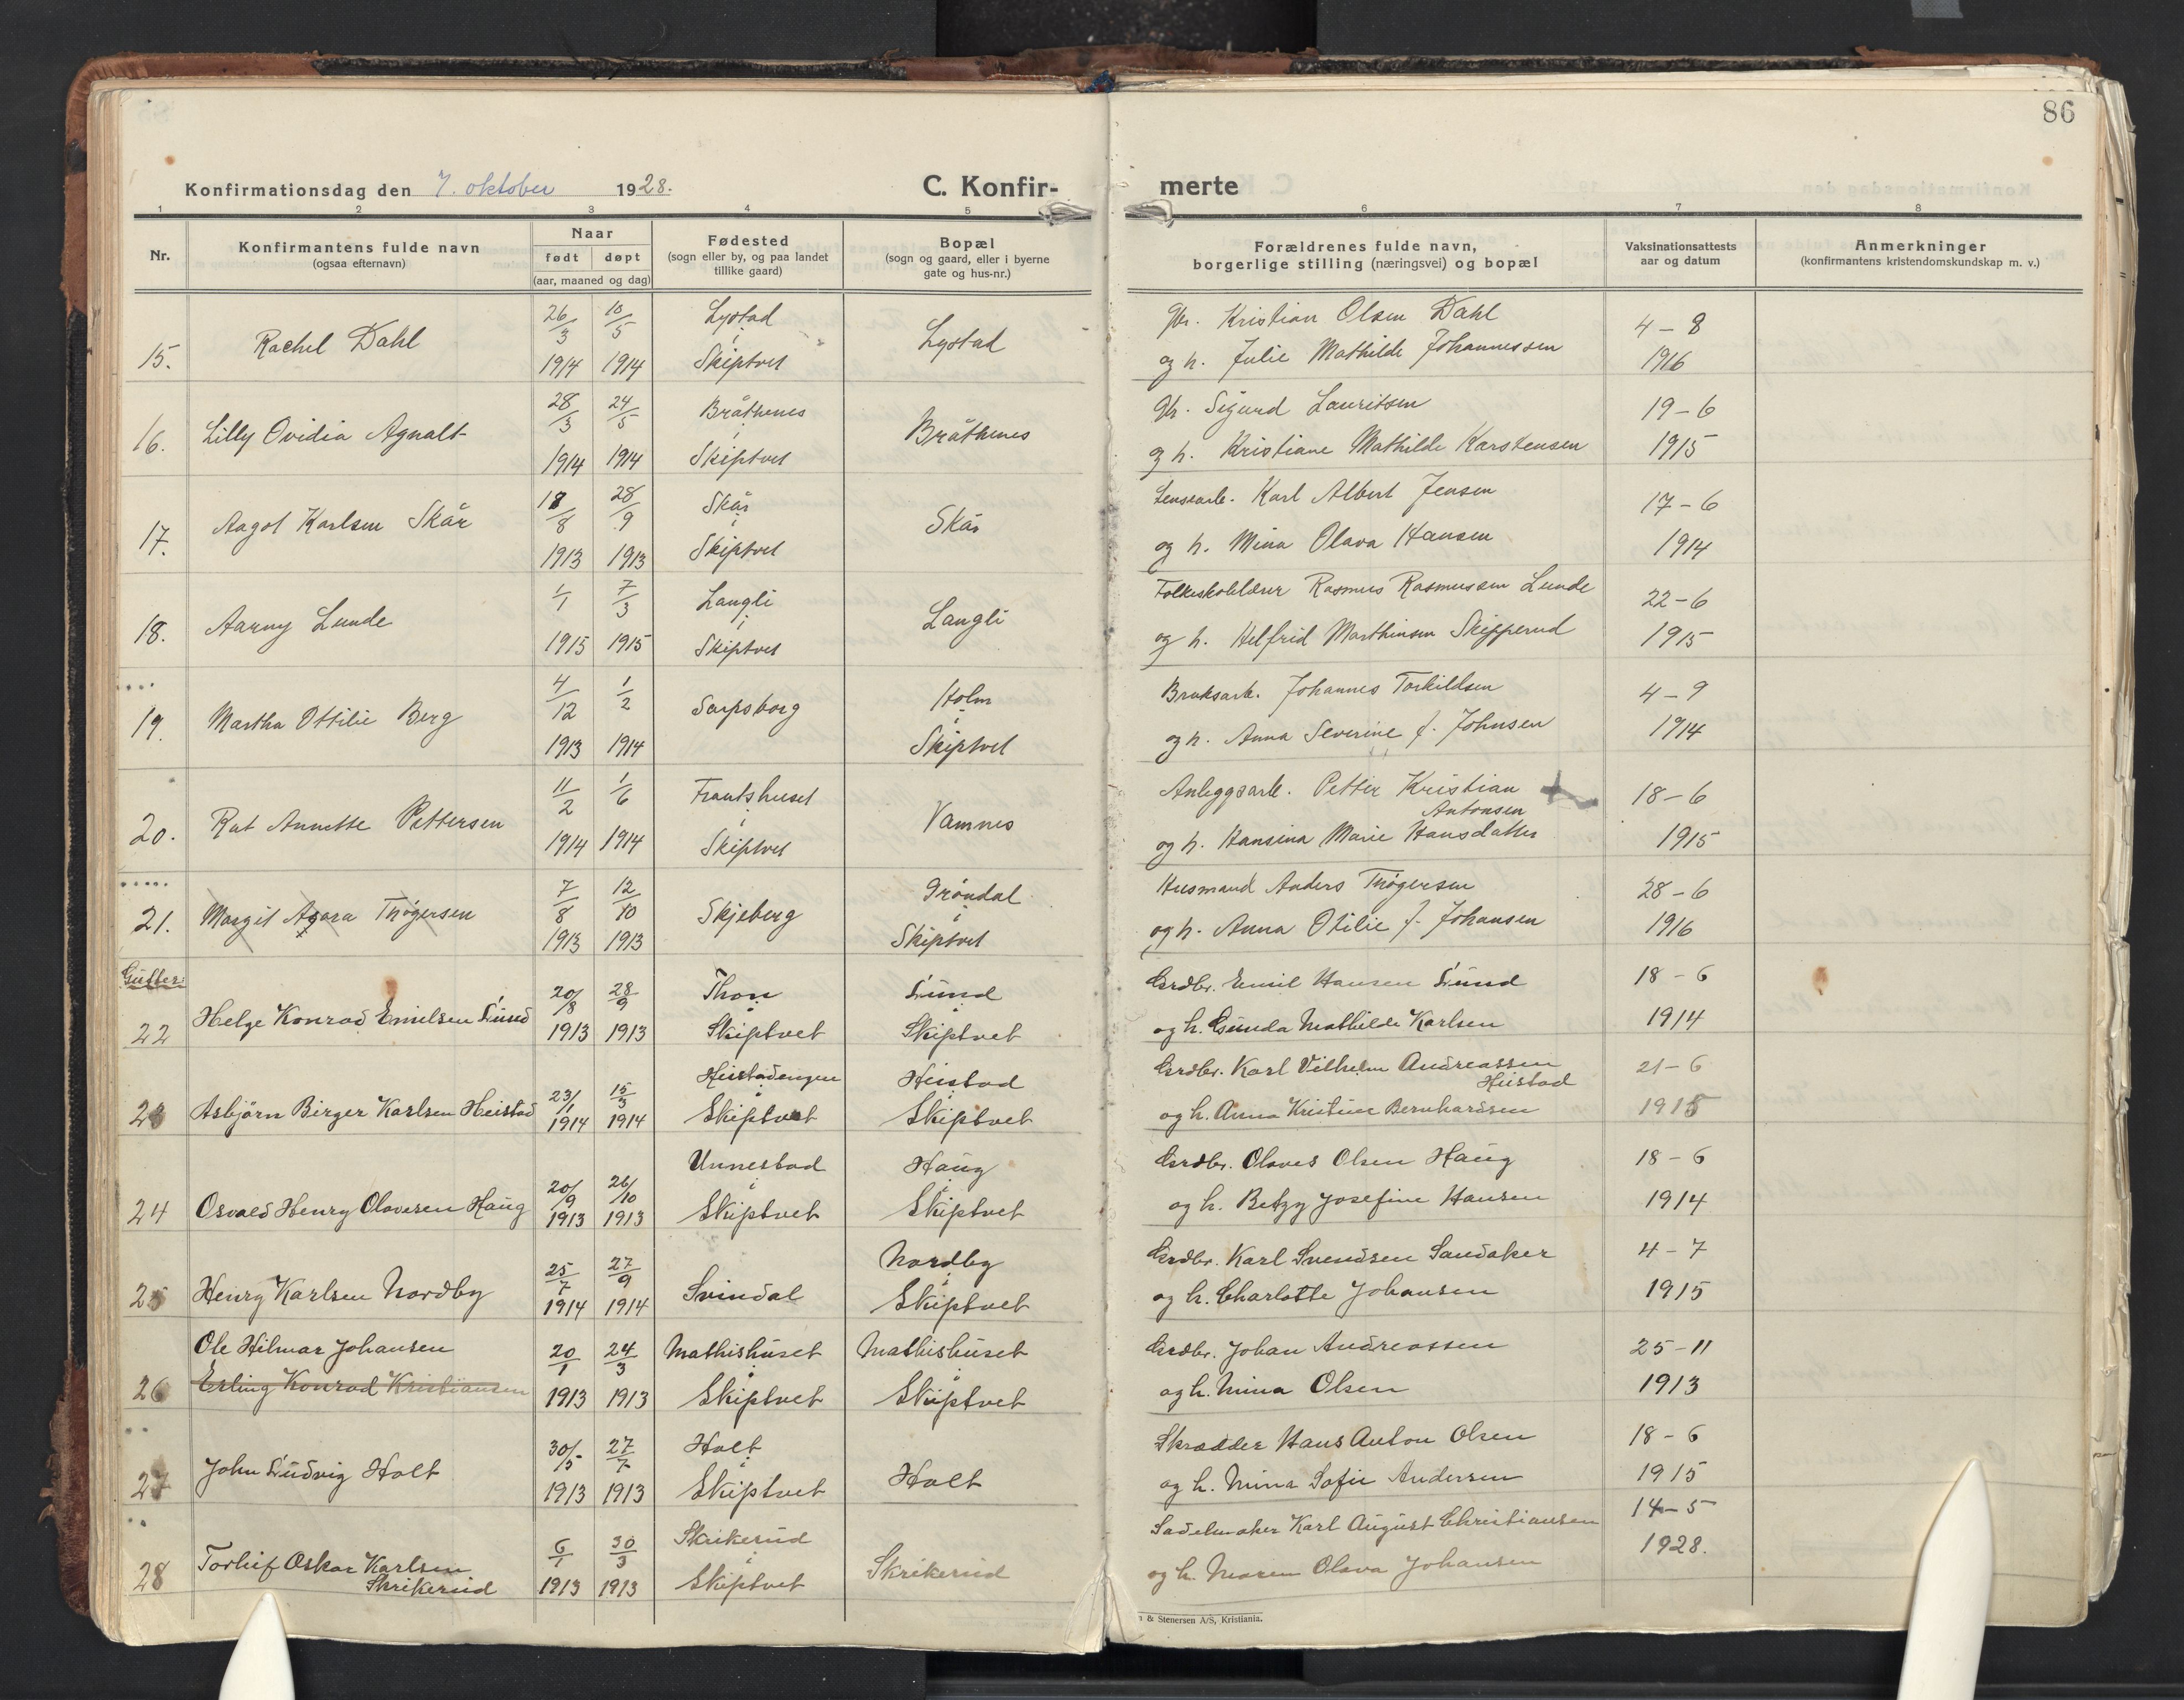 86
Konfirmationsdag den 7. oktober 1928.
C. Konfir-
merte
1 2 3 4 5 6 7 8
Nr.
Konfirmantens fulde navn
(ogsaa efternavn)
Naar
født døpt
(aar, maaned og dag)
Fødested
(sogn eller by, og paa landet
tillike gaard)
Bopæl
(sogn og gaard, eller i byerne
gate og hus-nr.)
Forældrenes fulde navn,
borgerlige stilling (næringsvei) og bopæl
Vaksinationsattests
aar og datum
Anmerkninger
(konfirmantens kristendomskundskap m. v.)
26/3 10/5 Lystad Gbr. Kristian Olsen Dahl 4-8
15. Rachel Dahl i Lystad
1914 1914 Skiptvet og h. Julie Mathilde Johannessen 1916
28/3 24/5 Bråthenes Gbr. Sigurd Lauritsen 19-6
16. Lilly Ovidia Agnalt i Bråthenes
1914 1914 Skiptvet og h. Kristiane Mathilde Karstensen 1915
18/8 28/9 Skår Lensearb. Karl Albert Jensen 17-6
17. Aagot Karlsen Skår i Skår
1913 1913 Skiptvet og h. Mina Olava Hansen 1914
1/1 7/3 Langli Folkeskolelærer Rasmus Rasmussen Lunde 22-6
18. Aarny Lunde i Langli
1915 1915 Skiptvet og h. Helfrid Marthinsen Skipperud 1915
4/12 1/2 Holm Bruksarb. Johannes Torkildsen 4-9
19. Martha Ottilie Berg Sarpsborg i
1913 1914 Skiptvet og h. Anna Severine f. Johnsen 1914
11/2 1/6 Frantshuset Anleggsarb. Petter Kristian 18-6
Antonsen
20. Rut Annette Pettersen i Vamnes
1914 1914 Skiptvet og h. Hansina Marie Hansdatter 1915
7/8 12/10 Gröndal Husmand Anders Thøgersen 28-6
21. Margit Agora Thøgersen Skjeberg i
1913 1913 Skiptvet og h. Anna Otilie f. Johansen 1916
Gutter:
20/8 28/9 Thon Lund Grdbr. Emil Hansen Lund 18-6
22 Helge Konrad Emilsen Lund i i
1913 1913 Skiptvet Skiptvet og h. Gunda Mathilde Karlsen 1914
23/1 15/3 Heistadengen Heistad Grdbr. Karl Vilhelm Andreassen 21-6
Heistad
23 Asbjörn Birger Karlsen Heistad i i
1914 1914 Skiptvet Skiptvet og h. Anna Kristine Bernhardsen 1915
20/9 26/10 Unnestad Haug Grdbr. Olaves Olsen Haug 18-6
24 Osvald Henry Olavesen Haug i i
1913 1913 Skiptvet Skiptvet og h. Betzy Josefine Hansen 1914
25/7 27/9 Nordby Grdbr. Karl Svendsen Sandaker 4-7
25 Henry Karlsen Nordby Svindal i
1914 1914 Skiptvet og h. Charlotte Johansen 1915
Ole Hilmar Johansen 20/1 24/3 Mathishuset Mathishuset Grdbr. Johan Andreassen 25-11
26 Erling Konrad Kristiansen i i
1913 1913 Skiptvet Skiptvet og h. Mina Olsen 1913
30/5 27/7 Holt Skrædder Hans Anton Olsen 18-6
27 John Ludvig Holt i Holt
1913 1913 Skiptvet og h. Mina Sofie Andersen 1915
6/1 30/3 Skrikerud Sadelmaker Karl August Christiansen 14-5
28 Torleif Oskar Karlsen i Skrikerud
Skrikerud
1913 1913 Skiptvet og h. Maren Olava Johansen 1928.
& Stenersen A/S, Kristiania.